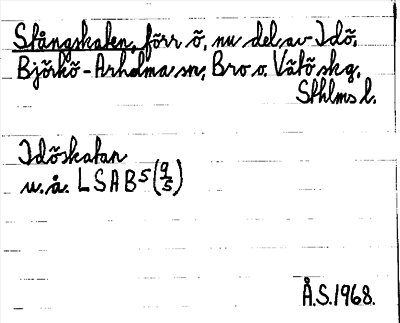 Stångskaten, förr ö, nu del av Idö,
Björkö-Arholma sn, Bro o. Vätö skg,
Sthlms l.
Idöskatan
u.å. LSAB5 (9/5)
Å.S. 1968.